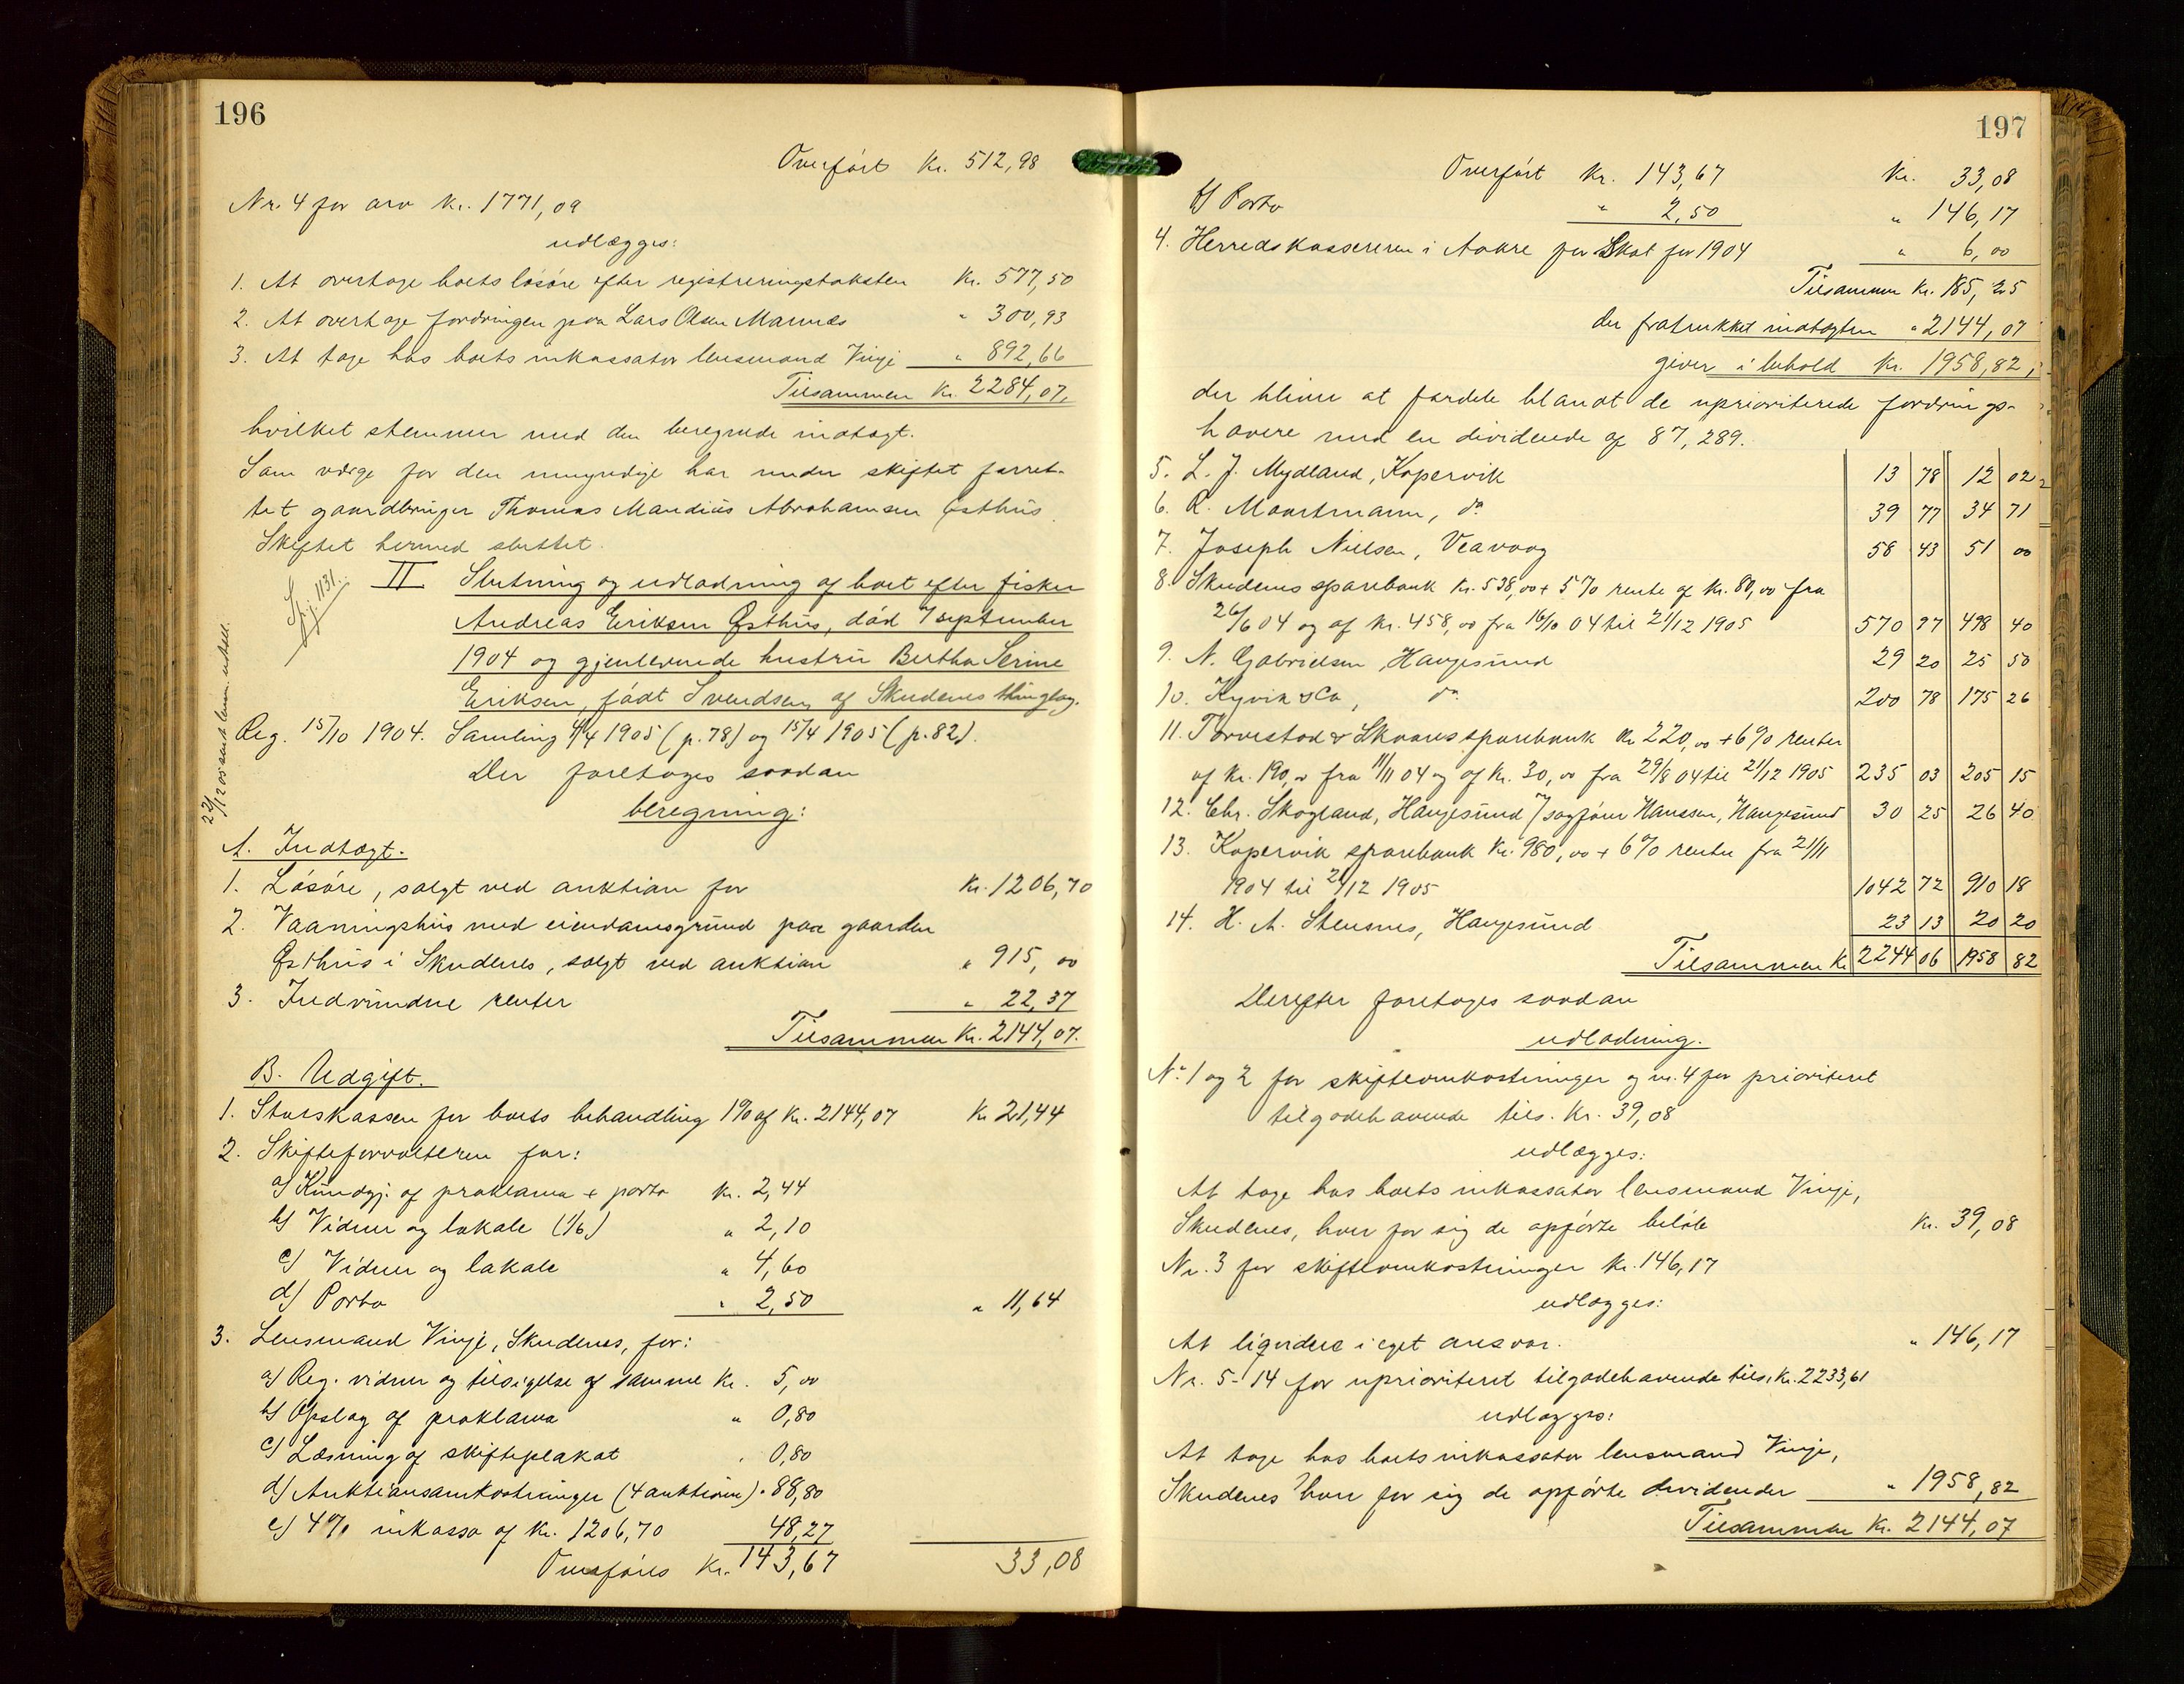 196
Overført Kr. 512,98
Nr. 4 for arv Kr. 1771,09
udlægges:
1. At overtage boets løsøre efter registreringstaksten Kr. 577,50
2. At overtage fordringen paa Lars Olsen Mannes " 300,93
3. At tage hos boets inkassator lensmand Vinje " 892,66
Tilsammen Kr. 2284,07.
hvilket stemmer med den beregnede indtægt.
Som værge for den umyndige har under skiftet forret-
tet gaardbruger Thomas Mandius Abrahamsen Østhus.
Skiftet hermed sluttet.
S. pj. 1131.
II Slutning og udlodning af boet efter fisker
Andreas Eriksen Østhus, død 7 september
1904 og gjenlevende hustru Bertha Serine
Eriksen, født Svendsen, af Skudenes thinglag.
22/12 05 sendt lensm. utsell.
Reg. 15/10 1904. Samling 4/4 1905 (p. 78) og 15/4 1905 (p. 82).
Der foretages saadan
beregning:
A. Indtægt.
1. Løsøre, solgt ved auktion for Kr. 1206,70
2. Vaaningshus med eiendomsgrund paa gaarden
Østhus i Skudenes, solgt ved auktion " 915,00
3. Indvundne renter " 22,37
Tilsammen Kr. 2144,07.
B. Udgift.
1. Statskassen for boets behandling 1% af Kr. 2144,07 Kr. 21,44
2. Skifteforvalteren for:
a) Kundgj. af proklama + porto Kr. 2,44
b) Vidner og lokale (1/6) " 2,10
c) Vidner og lokale " 4,60
d) Porto " 2,50 " 11,64
3. Lensmand Vinje, Skudenes, for:
a) Reg. vidner og tilsigelse af samme Kr. 5,00
b) Opslag af proklama " 0,80
c) Læsning af skifteplakat " 0,80
d) Auktionsomkostninger (4 auktioner) " 88,80
e) 4% inkasso af Kr. 1206,70 48,27
Overføres Kr. 143,67 33,08
197
Overført Kr. 143,67 Kr. 33,08
f) Porto " 2,50 " 146,17
4. Herredskassereren i Aakre for Skat for 1904 " 6,00
Tilsammen Kr. 185,25
der fratrukket indtægten " 2144,07
giver i behold Kr. 1958,82,
der bliver at fordele blandt de uprioriterede fordrings-
havere med en dividende af 87,289.
5. L. J. Mydland, Kopervik 13 78 12 02
6. R. Maartmann, do. 39 77 34 71
7. Joseph Nielsen, Veavaag 58 43 51 00
8. Skudenes sparebank Kr. 538,00 + 5% rente af Kr. 80,00 fra
26/6 04 og af Kr. 458,00 fra 16/10 04 til 21/12 1905 570 97 498 40
9. N. Gabrielsen, Haugesund 29 20 25 50
10. Kyvik & Co, do. 200 78 175 26
11. Torvestad & Skaares sparebank Kr. 220,00 + 6% renter
af Kr. 190,00 fra 11/11 04 og af Kr. 30,00 fra 29/8 04 til 21/12 1905 235 03 205 15
12. Chr. Skogland, Haugesund / sagfører Hanssen, Haugesund 30 25 26 40
13. Kopervik sparebank Kr. 980,00 + 6% renter fra 21/11
1904 til 21/12 1905 1042 72 910 18
14. H. A. Stensnes, Haugesund 23 13 20 20
Tilsammen Kr. 2244 06 1958 82
Derefter foretages saadan
udlodning.
No. 1 og 2 for skifteomkostninger og nr. 4 for prioriteret
tilgodehavende tils. Kr. 39,08
udlægges:
At tage hos boets inkassator lensmand Vinje,
Skudenes, hver for sig de opførte beløb Kr. 39,08
Nr. 3 for skifteomkostninger Kr. 146,17
udlægges:
At liqvidere i eget ansvar. " 146,17
Nr. 5-14 for uprioriteret tilgodehavende tils. Kr. 2233,61
udlægges:
At tage hos boets inkassator lensmand Vinje,
Skudenes hver for sig de opførte dividender " 1958,82
Tilsammen Kr. 2144,07